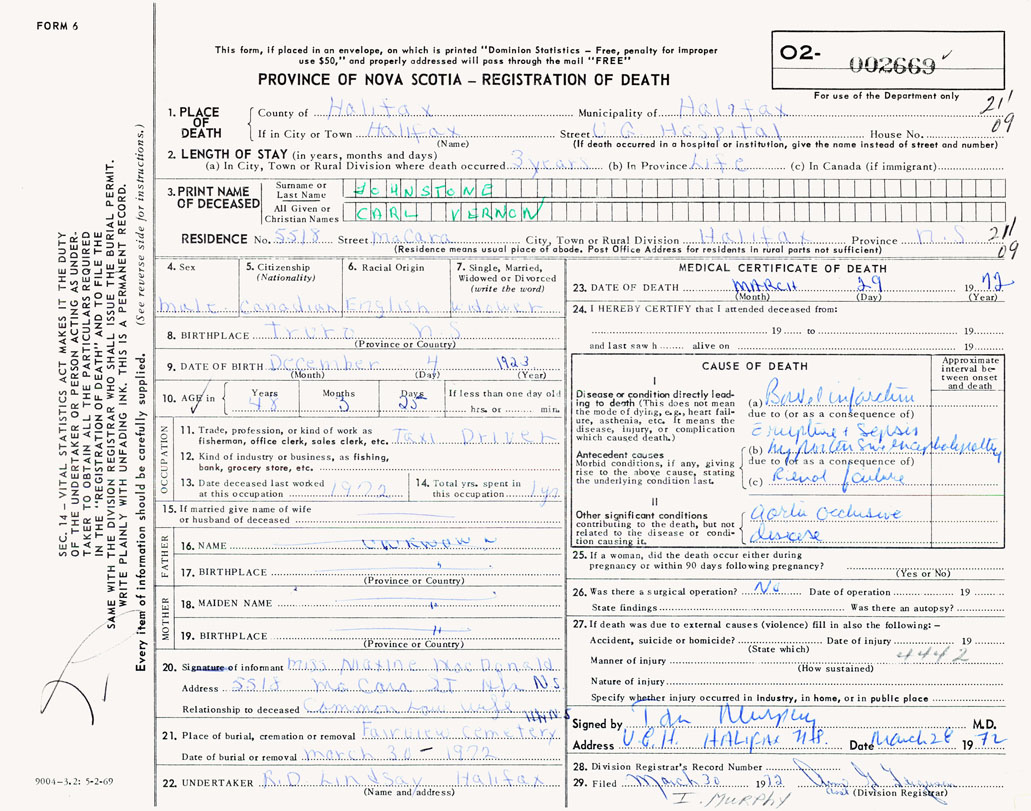 FORM 6
This form, if placed in an envelope, on which is printed "Dominion Statistics – Free, penalty for improper
use $50," and properly addressed will pass through the mail "FREE"
PROVINCE OF NOVA SCOTIA – REGISTRATION OF DEATH
O2- 002669
For use of the Department only
211
09
1. PLACE OF DEATH
County of Halifax Municipality of Halifax
If in City or Town Halifax Street V G Hospital House No.
(Name) (If death occurred in a hospital or institution, give the name instead of street and number)
2. LENGTH OF STAY (in years, months and days)
(a) In City, Town or Rural Division where death occurred 3 years (b) In Province Life (c) In Canada (if immigrant)
3. PRINT NAME OF DECEASED
Surname or Last Name JOHNSTONE
All Given or Christian Names CARL VERNON
RESIDENCE No. 5518 Street McCara City, Town or Rural Division Halifax Province N.S
211
09
(Residence means usual place of abode. Post Office Address for residents in rural parts not sufficient)
4. Sex 5. Citizenship (Nationality) 6. Racial Origin 7. Single, Married, Widowed or Divorced (write the word)
male Canadian English widower
8. BIRTHPLACE Truro N.S
(Province or Country)
9. DATE OF BIRTH December 4 1923
(Month) (Day) (Year)
10. AGE in Years Months Days If less than one day old
48 3 25 hrs. or min.
OCCUPATION
11. Trade, profession or kind of work as
fisherman, office clerk, sales clerk, etc. Taxi Driver
12. Kind of industry or business, as fishing,
bank, grocery store, etc.
13. Date deceased last worked
at this occupation 1972
14. Total yrs. spent in
this occupation 1 yr
15. If married give name of wife
or husband of deceased
FATHER
16. NAME unknown
17. BIRTHPLACE "
(Province or Country)
MOTHER
18. MAIDEN NAME "
19. BIRTHPLACE "
(Province or Country)
20. Signature of informant Miss Maxine MacDonald
Address 5518 McCara ST Hfx N S
Relationship to deceased Common Law wife
21. Place of burial, cremation or removal Fairview Cemetery
Date of burial or removal march 30 – 1972
22. UNDERTAKER R.D. Lindsay Halifax
(Name and address)
MEDICAL CERTIFICATE OF DEATH
23. DATE OF DEATH MARCH 29 1972
(Month) (Day) (Year)
24. I HEREBY CERTIFY that I attended deceased from:
19 to 19
and last saw h alive on 19
CAUSE OF DEATH
Approximate interval between onset and death
I
Disease or condition directly lead-
ing to death (This does not mean
the mode of dying, e.g., heart fail-
ure, asthenia, etc. it means the
disease, injury, or complication
which caused death.)
(a) Bowel infarction
due to (or as a consequence of)
+ Sepsis
Antecedent causes
Morbid conditions, if any, giving
rise to the above cause, stating
the underlying condition last.
(b) hypertensive encephalopathy
due to (or as a consequence of)
(c) Renal failure
II
Other significant conditions
contributing to the death, but not
related to the disease or condi-
tion causing it.
aortic occlusive
disease
25. If a woman, did the death occur either during
pregnancy or within 90 days following pregnancy?
(Yes or No)
26. Was there a surgical operation? No Date of operation 19
State findings Was there an autopsy?
27. If death was due to external causes (violence) fill in also the following: –
Accident, suicide or homicide? Date of injury 19
(State which)
4442
Manner of injury
(How sustained)
Nature of injury
Specify whether injury occurred in industry, in home, or in public place
Signed by Ian Murphy M.D.
Address V.G.H. HALIFAX N.S. Date March 28 1972
28. Division Registrar's Record Number
29. Filed March 30 1972
(Division Registrar)
I. MURPHY
SEC. 14 – VITAL STATISTICS ACT MAKES IT THE DUTY
OF THE UNDERTAKER OR PERSON ACTING AS UNDER-
TAKER TO OBTAIN ALL THE PARTICULARS REQUIRED
IN THE "REGISTRATION OF DEATH" AND TO FILE THE
SAME WITH THE DIVISION REGISTRAR WHO SHALL ISSUE THE BURIAL PERMIT.
WRITE PLAINLY WITH UNFADING INK. THIS IS A PERMANENT RECORD.
Every item of information should be carefully supplied. (See reverse side for instructions.)
9004-3.2: 5-2-69